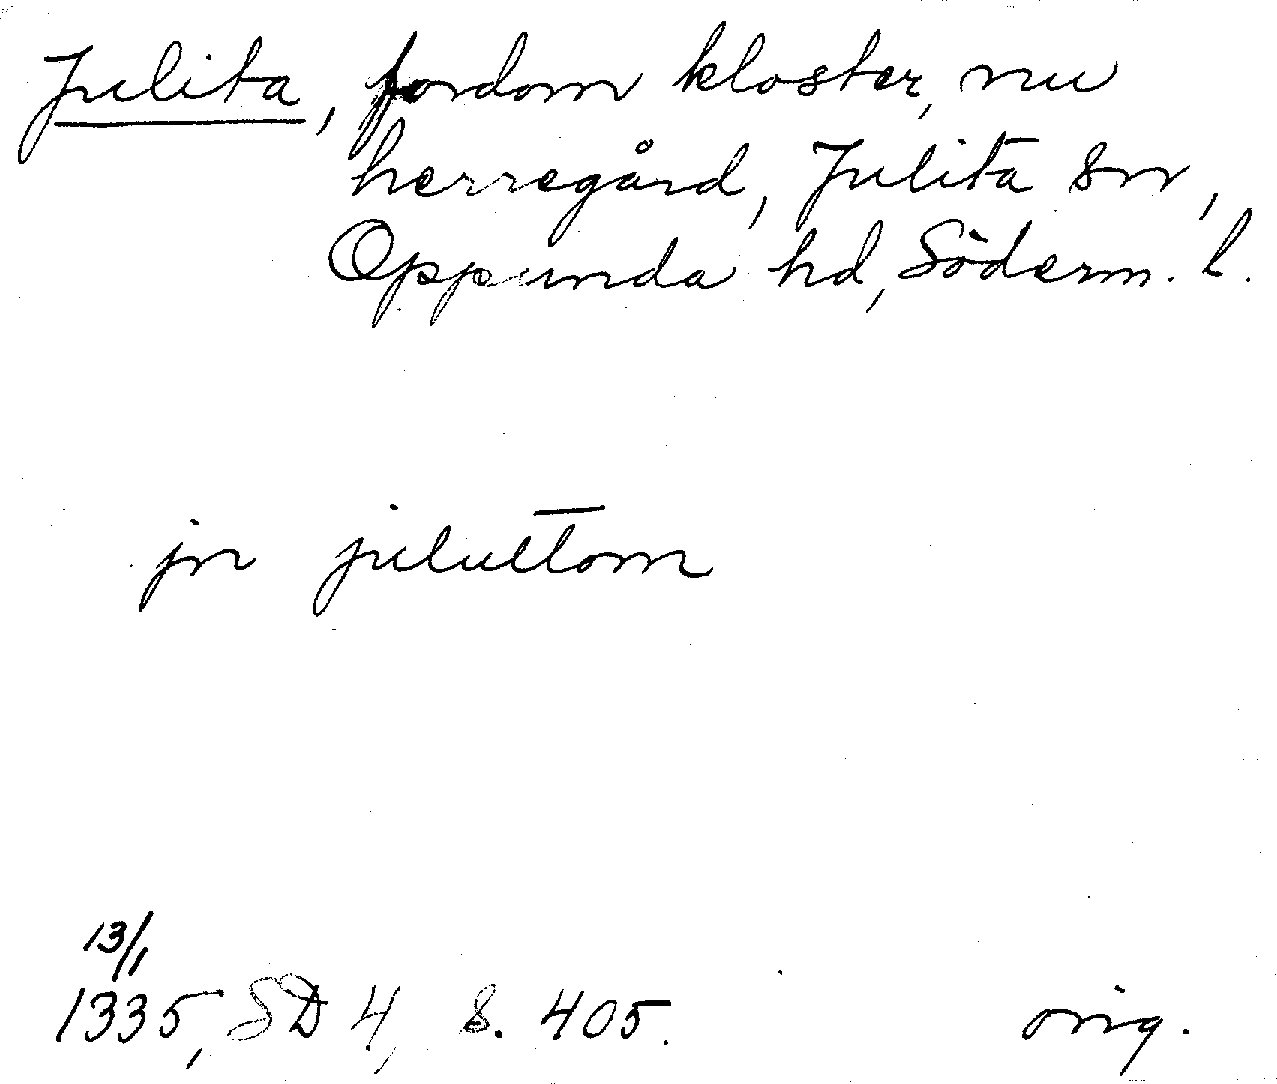 Julita, fordom kloster, nu
herregård, Julita sn,
Oppunda hd, Söderm. l.
jn juluttom
13/1
1335, SD 4, s. 405. orig.